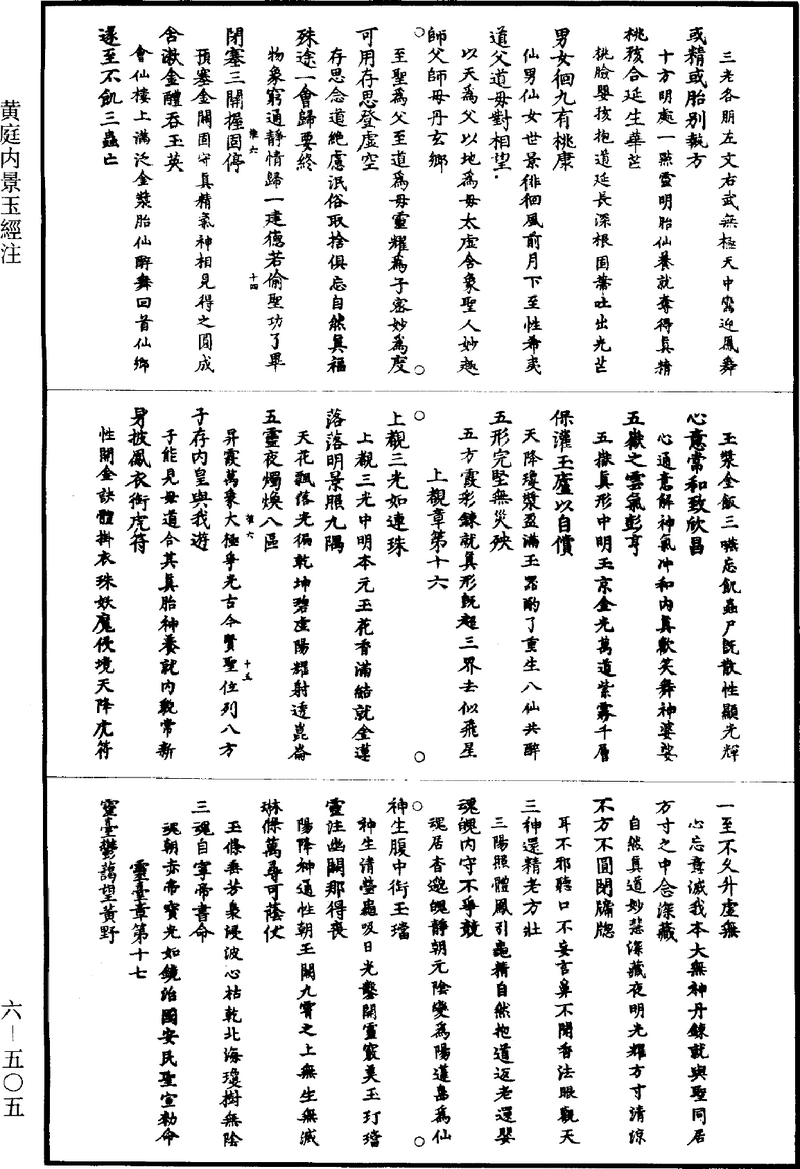 三老各朋左文右武無極天中鸞迎鳳舞
或精或胎別執方
十方明處一點靈明胎仙養就奪得真精
桃孩合延生華芒
桃臉嬰孩抱道延長深根固蔕吐出光芒
男女徊九有桃康
仙男仙女世景徘徊風前月下至性希夷
道父道母對相望
以天為父以地為母太虛含象聖人妙趣
師父師母丹玄鄉
至聖為父至道為母靈耀為子容妙為度
可用存思登虛空
存思念道絶慮泯俗取捨俱忘自然真福
殊途一會歸要終
物象窮通靜情歸一建德若偷聖功了畢
閉塞三關握固停
預塞金關固守真精氣神相見得之圓成
含漱金醴吞玉英
會仙樓上滿泛金漿胎仙醉舞回首仙鄉
遂至不飢三蟲亡
推六
十四
玉漿金飯三嚥忘飢蟲尸既散性顯光輝
心意常和致欣昌
心通意解神氣冲和內真歡笑舞神婆娑
五嶽之雲氣彭亨
五嶽真形中明玉京金光萬道紫霧千層
保灌玉廬以自償
天降瓊漿盈滿玉器酌了重生八仙共醉
五形完堅無災殃
五方霞彩鍊就真形既超三界去似飛星
上覩章第十六
上覩三光如連珠
上覩三光中明本元玉花香滿結就金蓮
落落明景照九隅
天花飄落光徧乾坤碧虛陽耀射透崑崙
五靈夜燭煥八區
昇霞萬象大極爭光古今賢聖位列八方
子存內皇與我遊
子能見母道合其真胎神養就內觀常新
身披鳳衣銜虎符
性開金訣體掛衣珠妖魔侵境天降虎符
推六
十五
一至不久升虛無
心忘意滅我本大無神丹鍊就與聖同居
方寸之中念深藏
自然真道妙慧深藏夜明光耀方寸清涼
不方不圓閉牖牕
耳不邪聽口不妄言鼻不聞香法眼觀天
三神還精老方壯
三陽照體鳳引龜精自然抱道返老還嬰
魂魄內守不爭競
魂居杳邈魄靜朝元陰變為陽蓬島為仙
神生腹中銜玉璫
神生清瑩龜吸日光鑿開靈竅奠玉玎璫
靈注幽闕那得喪
陽降神通性朝玉闕九霄之上無生無滅
琳條萬尋可蔭仗
玉條垂苦梟浸波心枯乾北海瓊樹無陰
三魂自寧帝書命
魂朝赤帝寶光如鏡治國安民聖宣勅命
靈臺章第十七
靈臺鬱藹望黃野
黄庭内景玉經注
六－五〇五